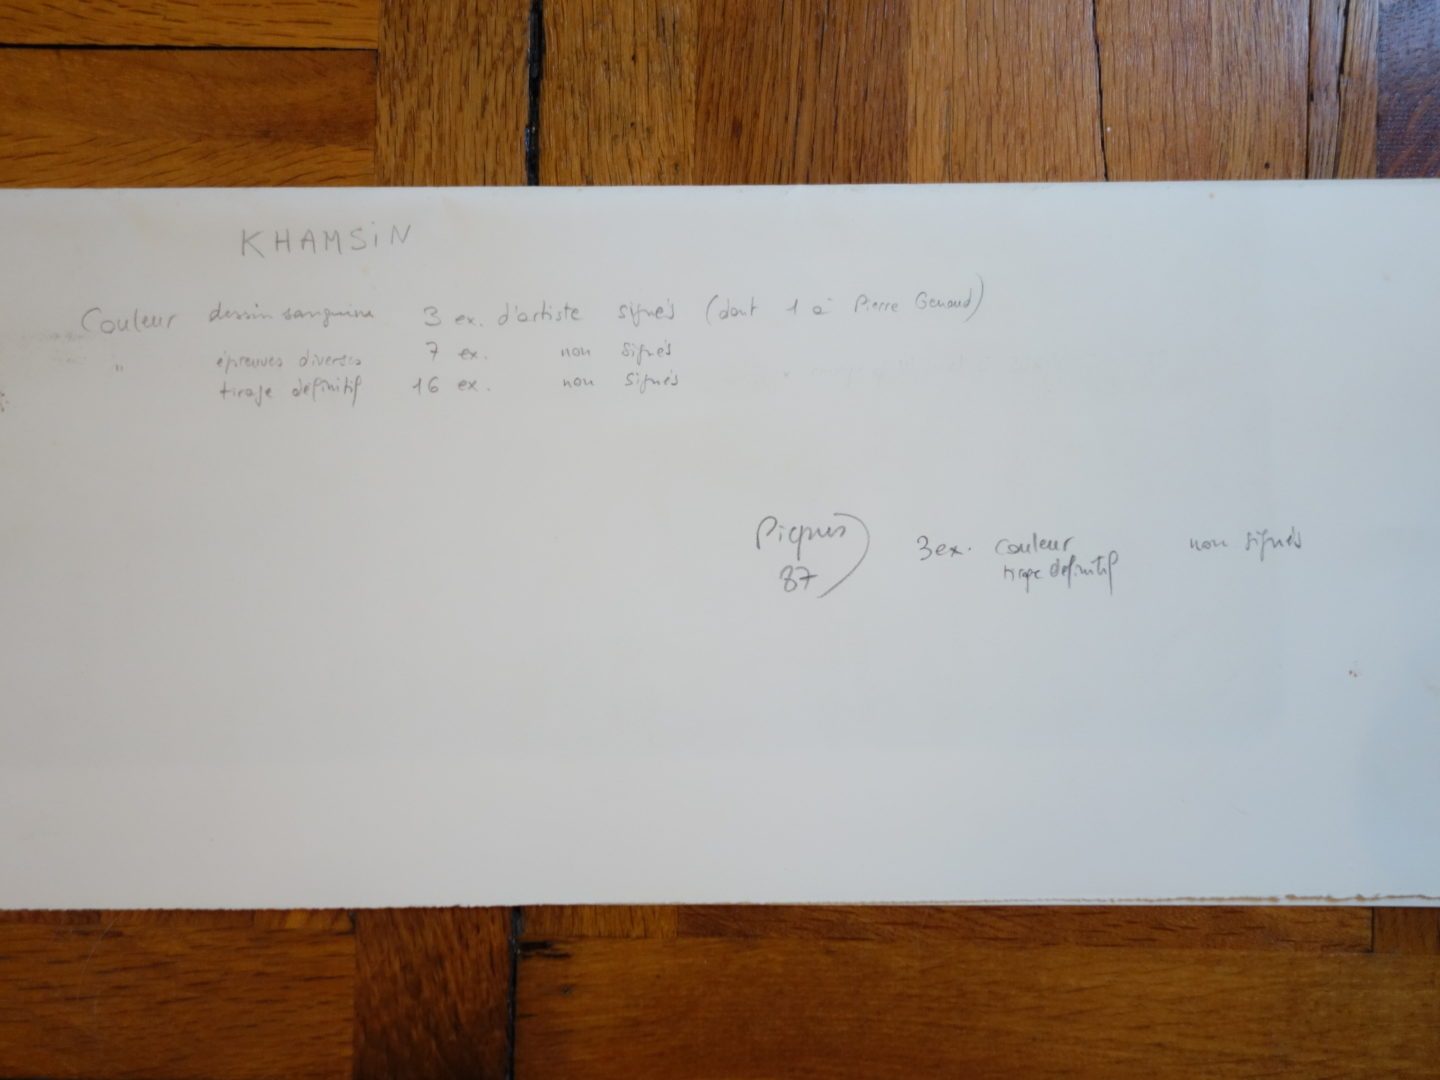 KHAMSiN
Couleur dessin sanguine 3 ex. d'artiste signés (dont 1 à Pierre Genoud)
" épreuves diverses 7 ex. non signés
tirage définitif 16 ex. non signés
Piqués) 3 ex. couleur non signés
87 tirage définitif